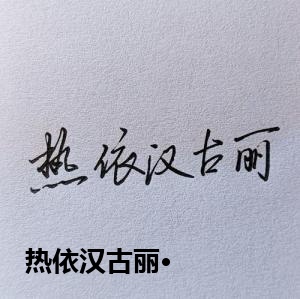 热依汉古丽
热依汉古丽•